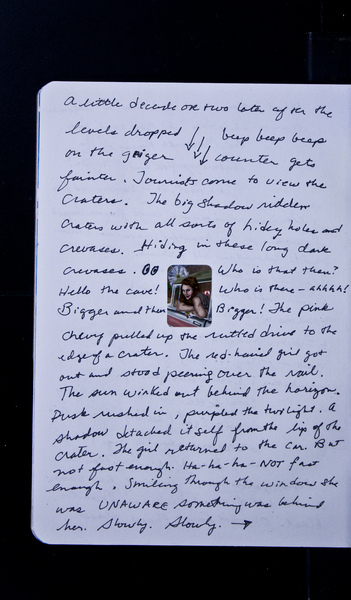 A little decade or two later after the
levels dropped ↓↓ beep beep beep
on the geiger ↓↓ counter gets
fainter. Tourists come to view the
craters. The big shadow ridden
craters with all sorts of hidey holes and
crevases. Hiding in these long dark
crevases. Who is that then?
Hello the cave! Who is there - ahhhh!
Bigger and then Bigger! The pink
chevy pulled up the rutted drive to the
edge of a crater. The red-haired girl got
out and stood peering over the rail.
The sun winked out behind the horizon.
Dusk rushed in, purpled the twilight. A
shadow detached itself from the lip of the
crater. The girl returned to the car. But
not fast enough. Ha-ha-ha-NOT fast
enough. Smiling through the window she
was UNAWARE something was behind
her. Slowly. Slowly. →